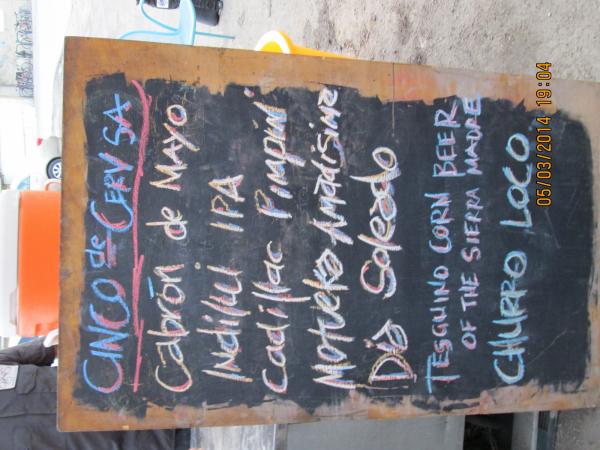 CINCO de CERV SA
Cabrón de Mayo
Indilui IPA
Cadillac Pimpin'
Dia Soleado
TESGUINO CORN BEER
OF THE SIERRA MADRE
CHURRO LOCO
05/03/2014 19:04